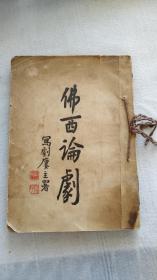 佛西論劇
寫劇廎主署